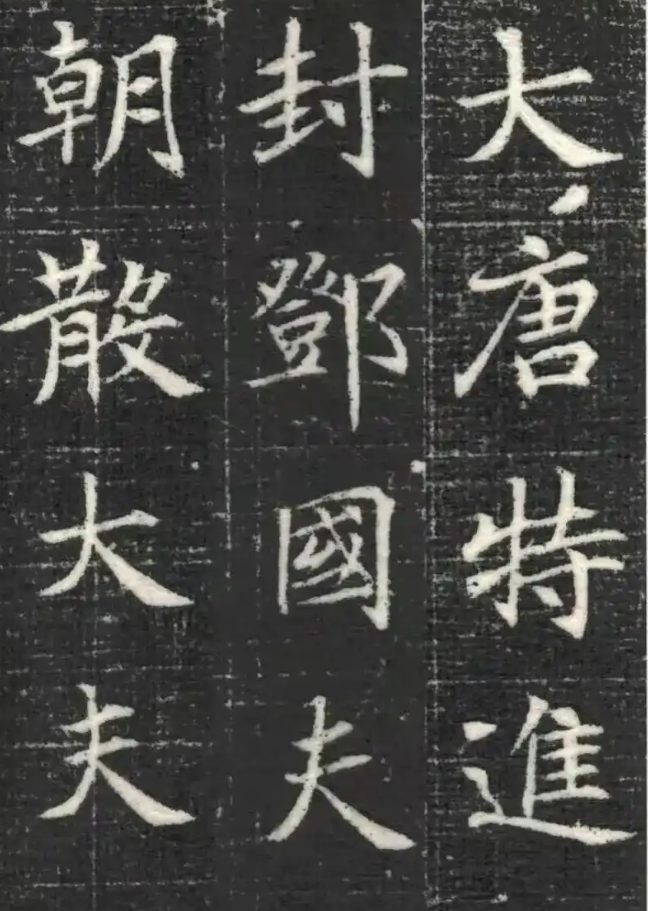 大唐特進
封鄧國夫
朝散大夫